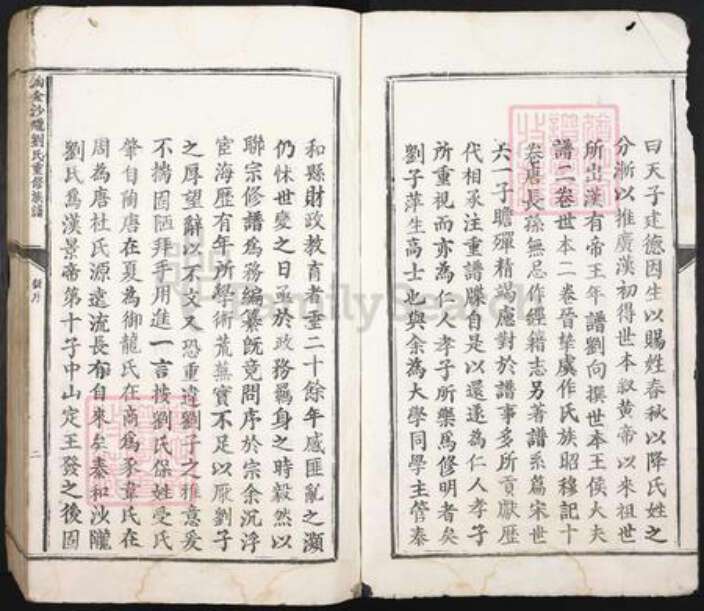 曰天子建德因生以賜姓春秋以降氏姓之
分漸以推廣漢初得世本叙黄帝以來祖世
所出漢有帝王年譜劉向撰世本王侯大夫
譜二卷世本二卷晉摯虞作氏族昭穆記十
卷唐長孫無忌作經籍志另著譜系篇宋世
六一子瞻殫精竭慮對於譜事多所貢獻歷
代相承注重譜牒自是以還遂為仁人孝子
所重視而亦為仁人孝子所樂為修明者矣
劉子萍生高士也與余為大學同學主管泰
和縣財政教育者垂二十餘年感匪亂之瀕
仍怵世變之日亟於政務羈身之時毅然以
聯宗修譜為務編纂既竟問序於宗余沉浮
宦海歷有年所學術荒蕪實不足以厭劉子
之厚望辭以不文又恐重違劉子之雅意爰
不揣固陋拜手用進一言按劉氏保姓受氏
肇自陶唐在夏為御龍氏在商為豕韋氏在
周為唐杜氏源遠流長有自來矣泰和沙隴
劉氏為漢景帝第十子中山定王發之後因
金沙隴劉氏重修族譜
二
FamilySearch